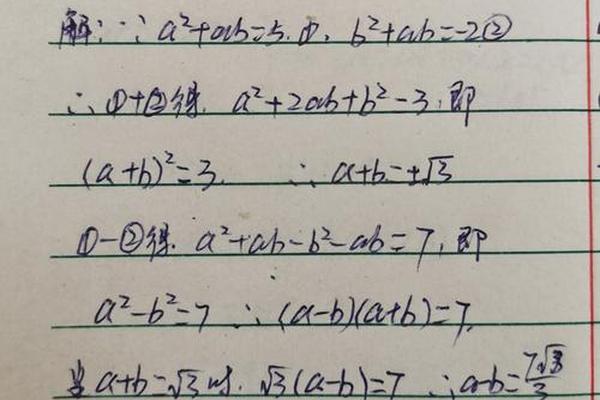 解:∵a²+ab=5①, b²+ab=-2②
∴①+②得. a²+2ab+b²=3,即
(a+b)²=3. ∴a+b=±√3
①-②得. a²+ab-b²-ab=7,即
a²-b²=7 ∴(a-b)(a+b)=7.
当a+b=√3时. √3(a-b)=7 ∴a-b=7√3/3